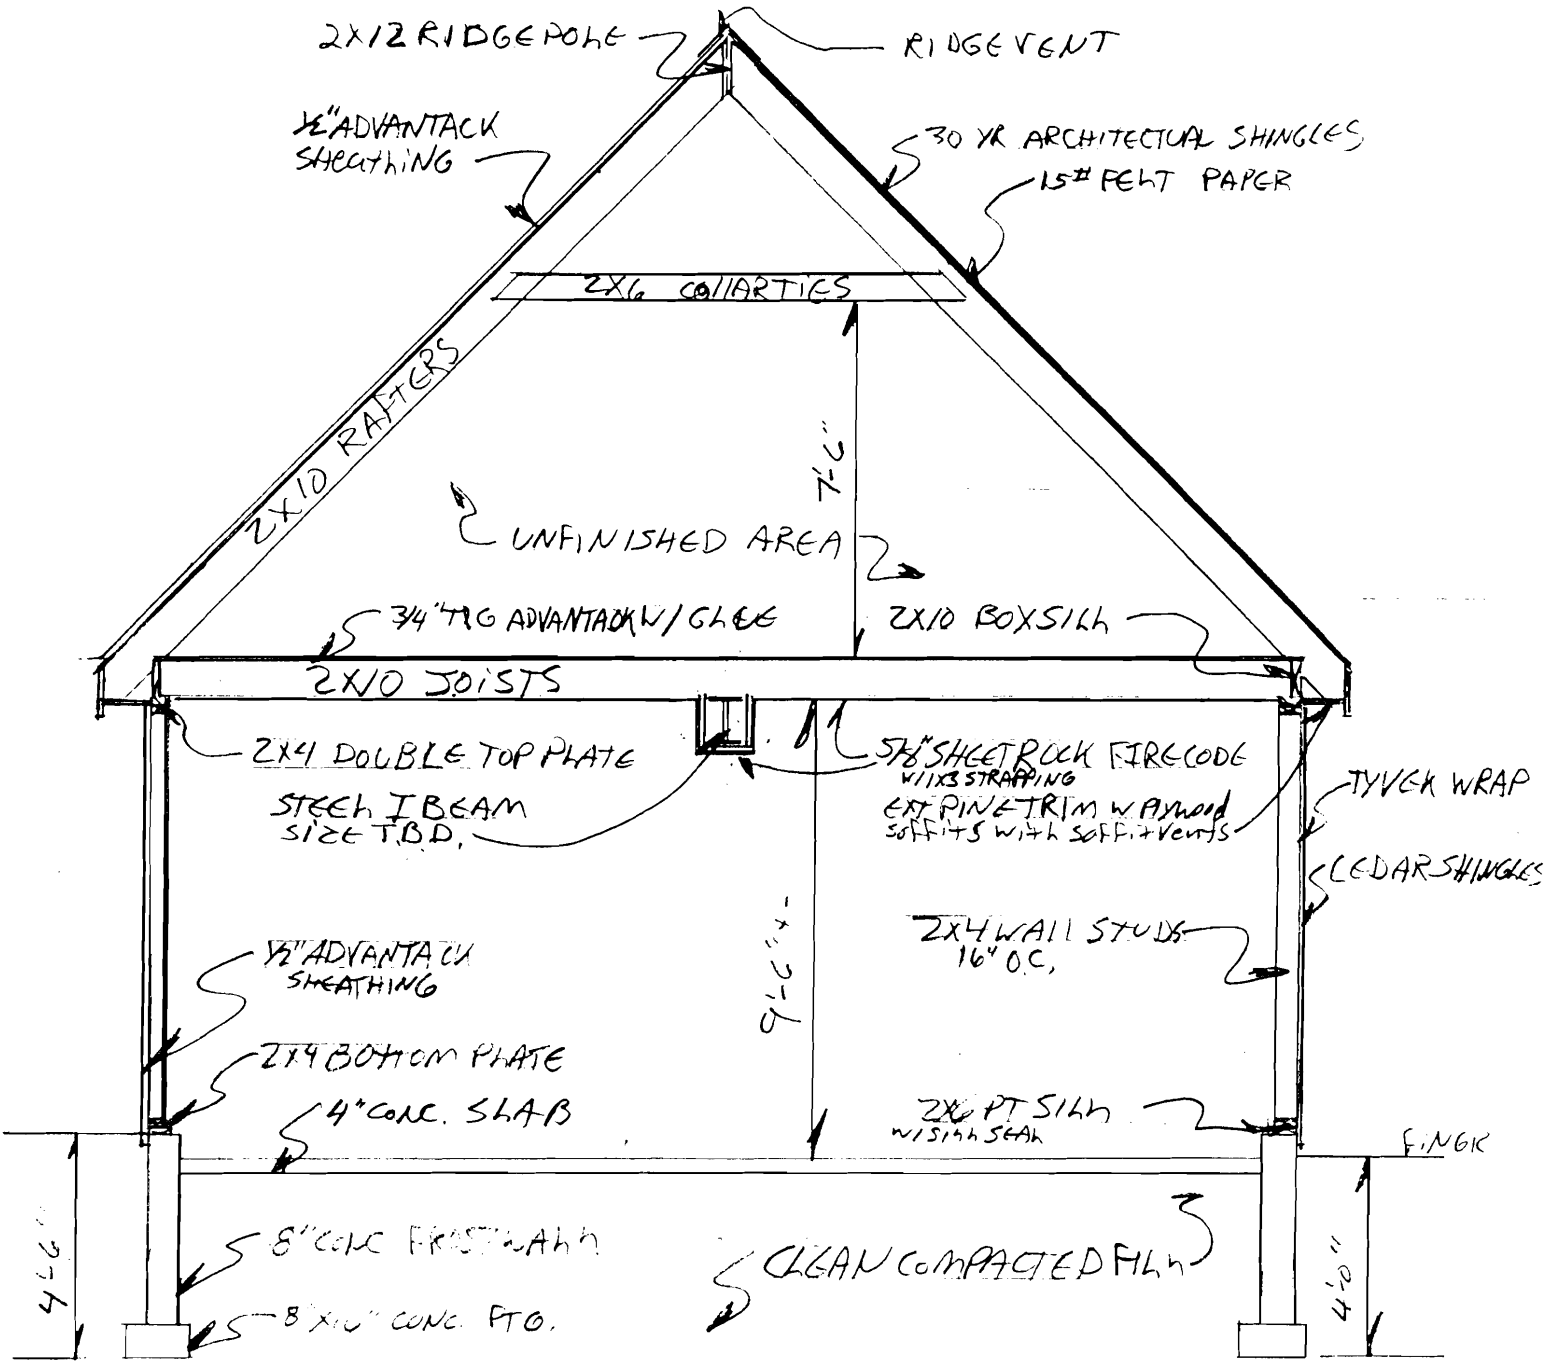 2X12 RIDGEPOLE
RIDGEVENT
1/2" ADVANTACK
SHeathiNG
30 YR ARCHITECTUAL SHINGLES
15# FELT PAPER
2X6 COllARTIES
2X10 RAFTERS
7'-6"
UNFINISHED AREA
3/4" T&G ADVANTACK W/ GLUE
2X10 BOXSILL
2X10 JOISTS
2X4 DOUBLE TOP PLATE
5/8" SHEETROCK FIRECODE
W/1X3 STRAPPING
STEEL I BEAM
SIZE T.B.D.
EXT PINE TRIM W Plywood
soffits with soffit vents
TYVEK WRAP
CEDAR SHINGLES
2X4 WAll STUDS
16" O.C.
9'-6" +-
1/2" ADVANTACK
SHEATHING
2X4 BOTTOM PLATE
4" CONC. SLAB
2X6 PT SILL
W/ SILL SEAL
FINGR
8" CONC FROSTWALL
CLEAN COMPACTED FILL
4'-6"
4'-0"
8"X16" CONC. FTG.